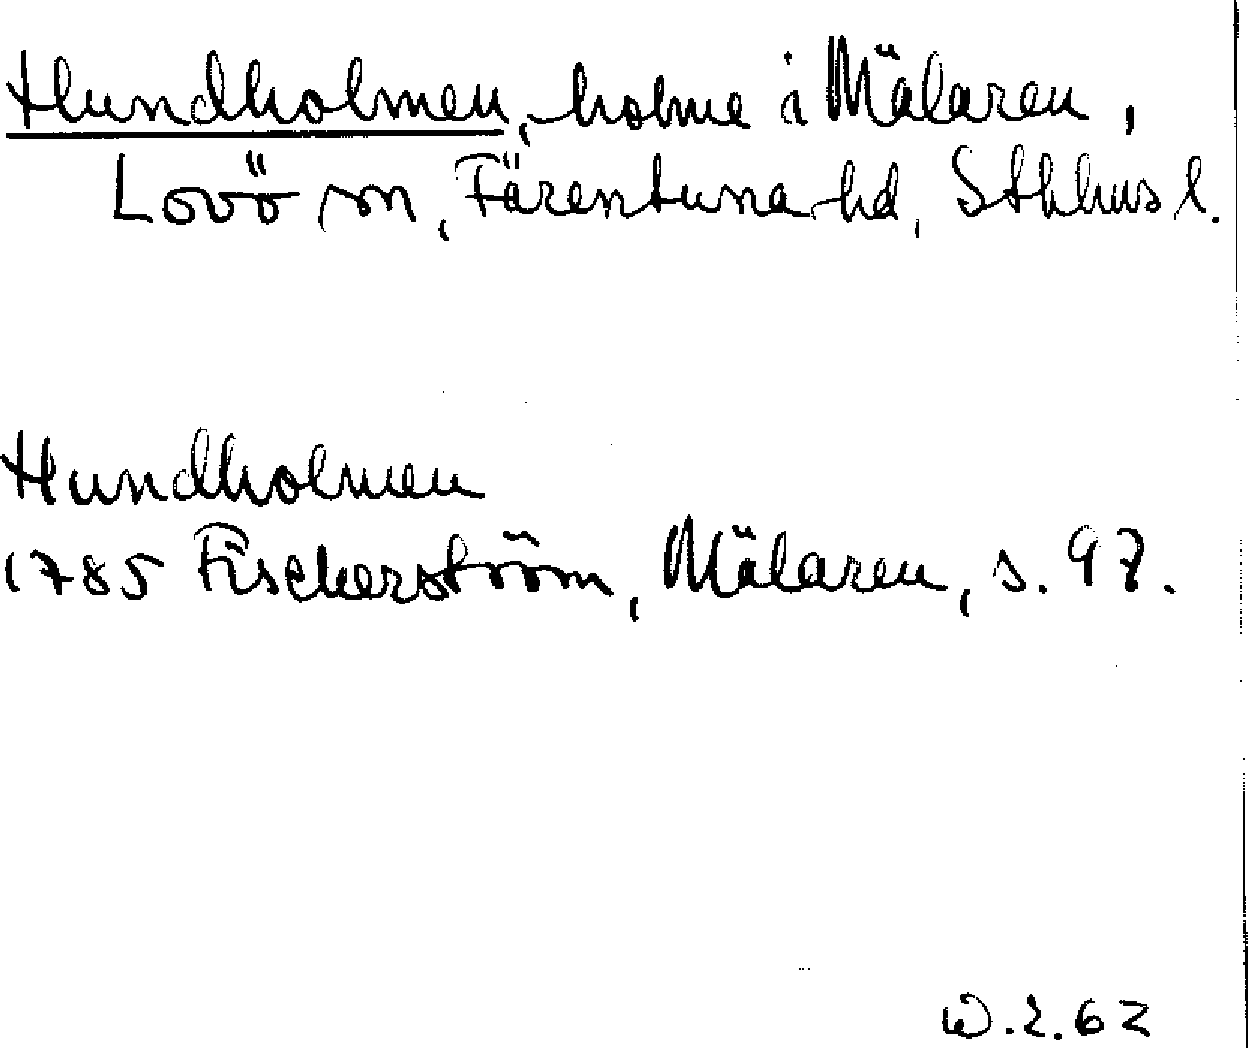 Hundholmen, holme i Mälaren,
Lovö sn, Färentuna hd, Sthlms l.
Hundholmen
1785 Fischerström, Mälaren, s. 97.
W.2.62